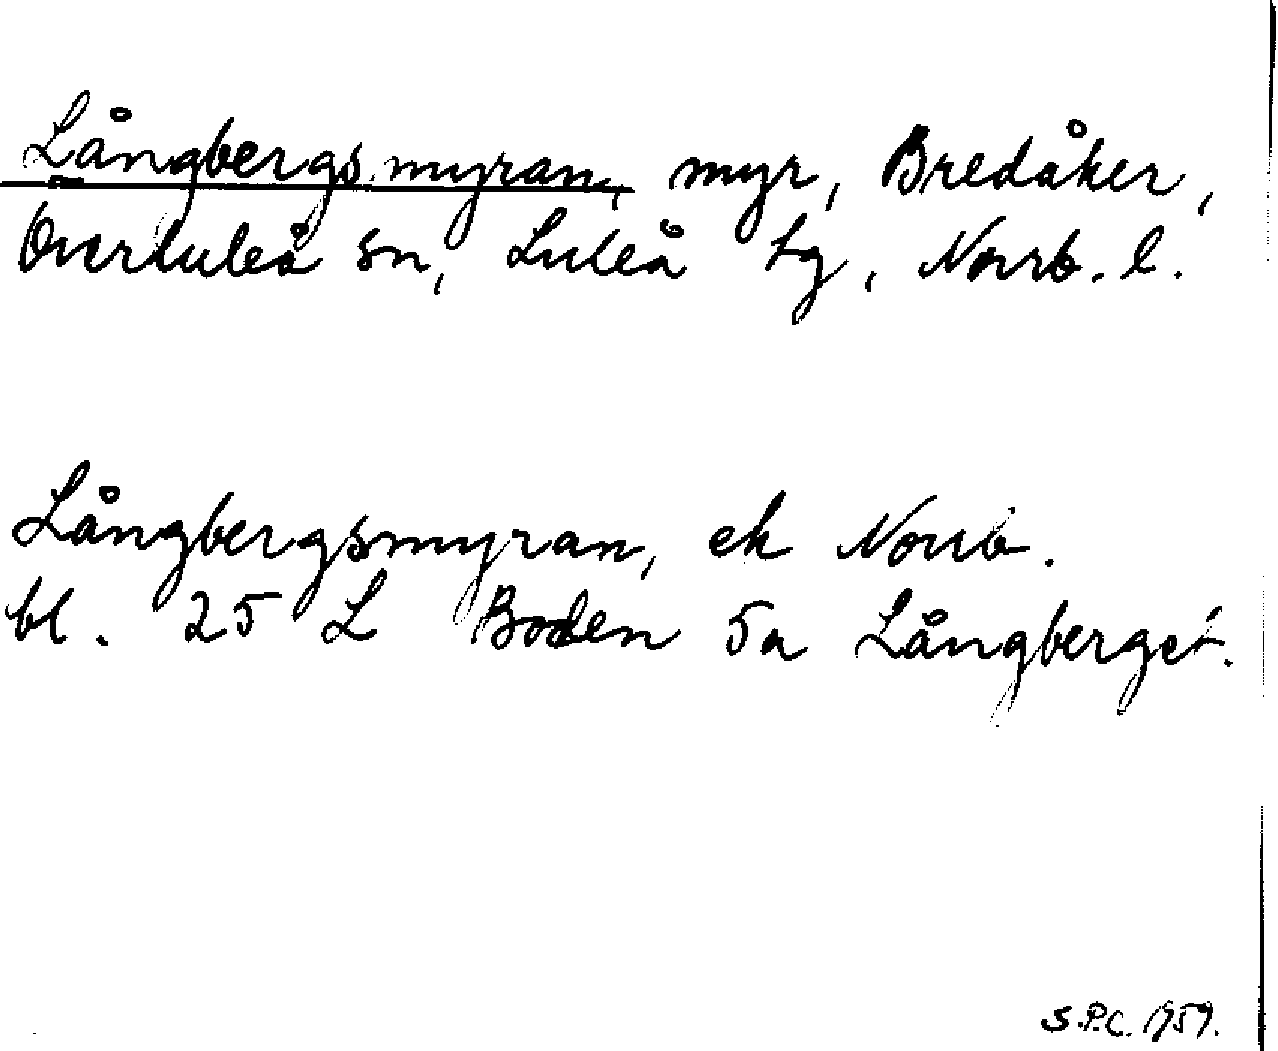 Långbergsmyran, myr, Bredåker,
Överluleå sn, Luleå tg, Norrb. l.
Långbergsmyran, ek Norrb.
bl. 25 L Boden 5a Långberget.
S.P.C. 1959.